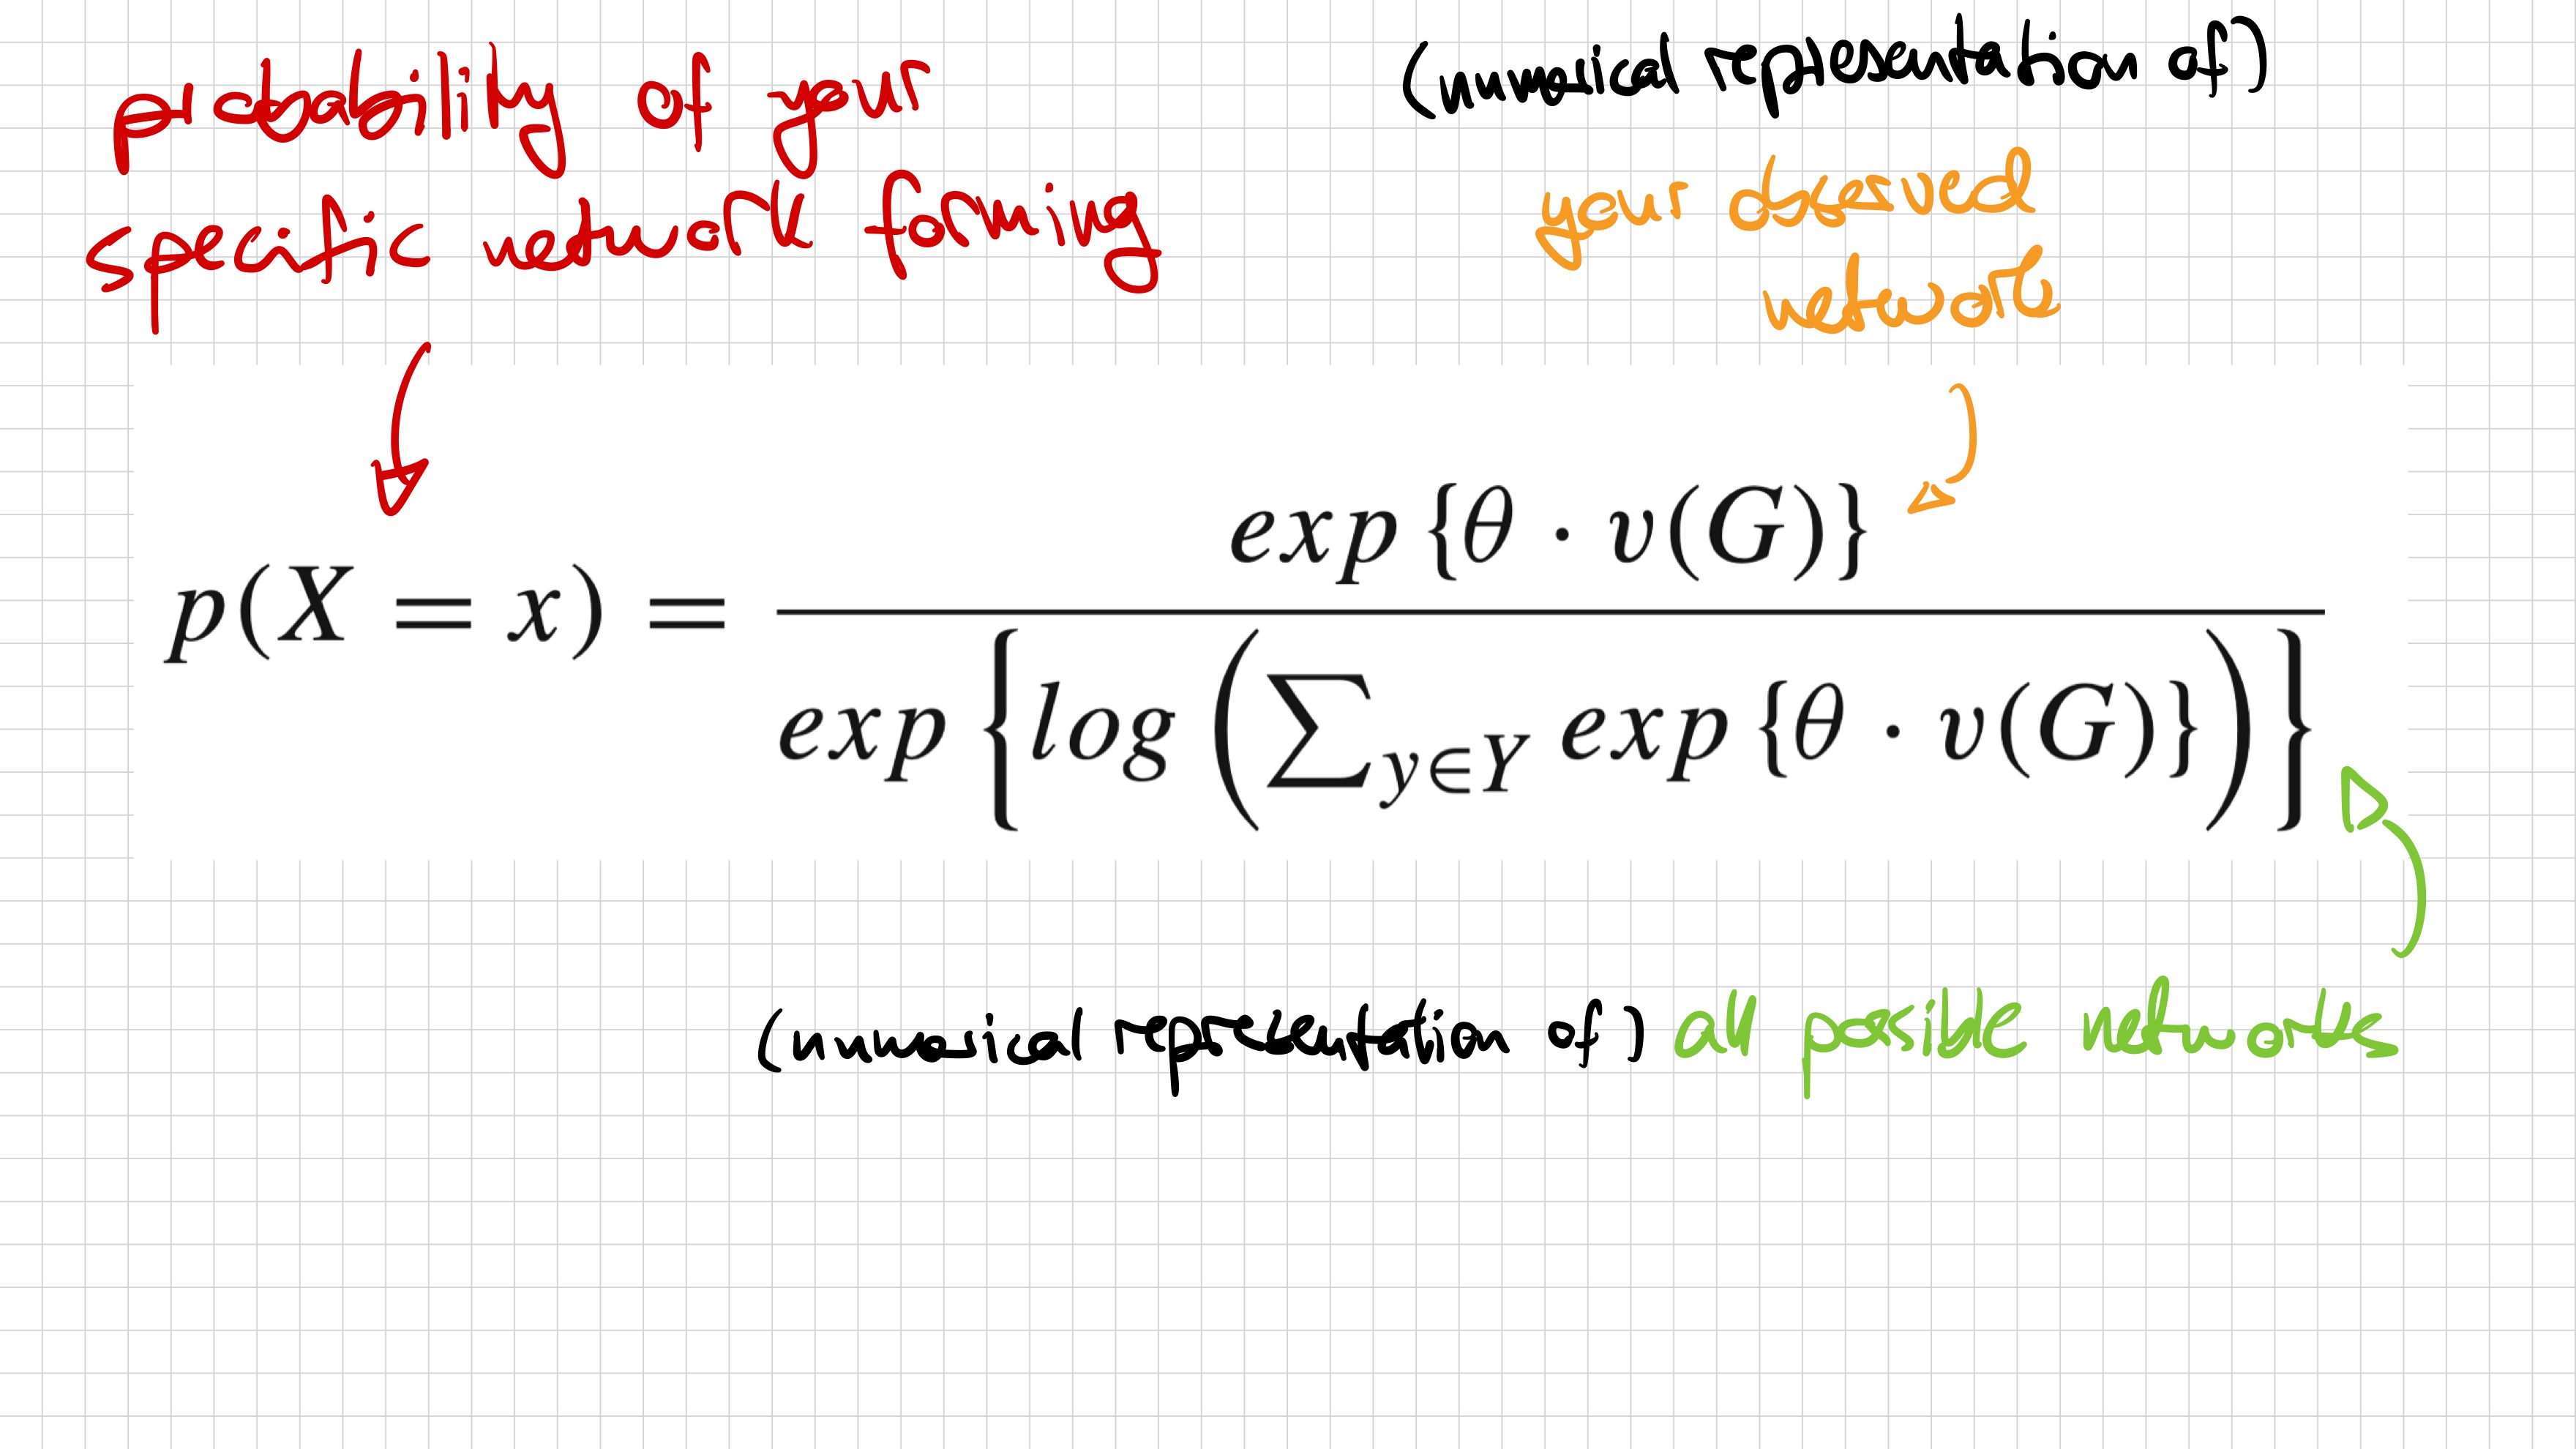 probability of your
specific network forming
(numerical representation of)
your observed
network
p(X = x) = exp {θ · v(G)} / exp {log (∑y∈Y exp {θ · v(G)})}
(numerical representation of) all possible networks